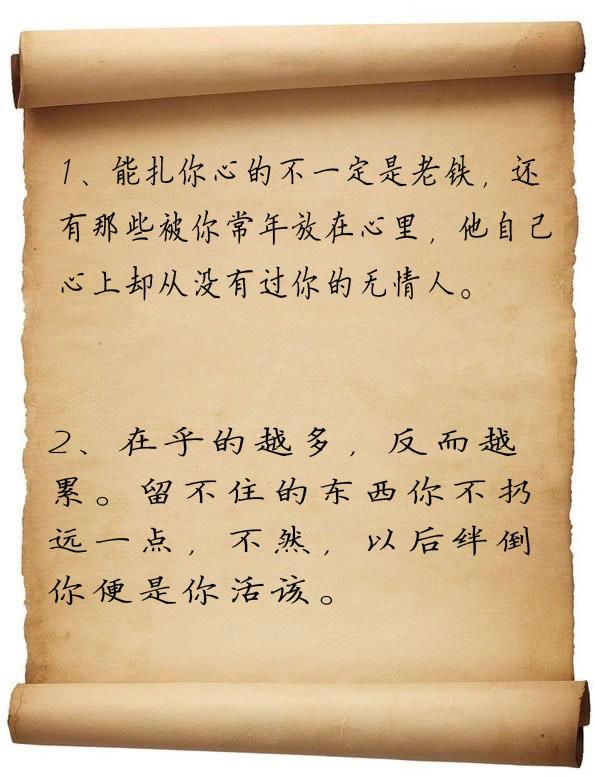 1、能扎你心的不一定是老铁，还
有那些被你常年放在心里，他自己
心上却从没有过你的无情人。
2、在乎的越多，反而越
累。留不住的东西你不扔
远一点，不然，以后绊倒
你便是你活该。